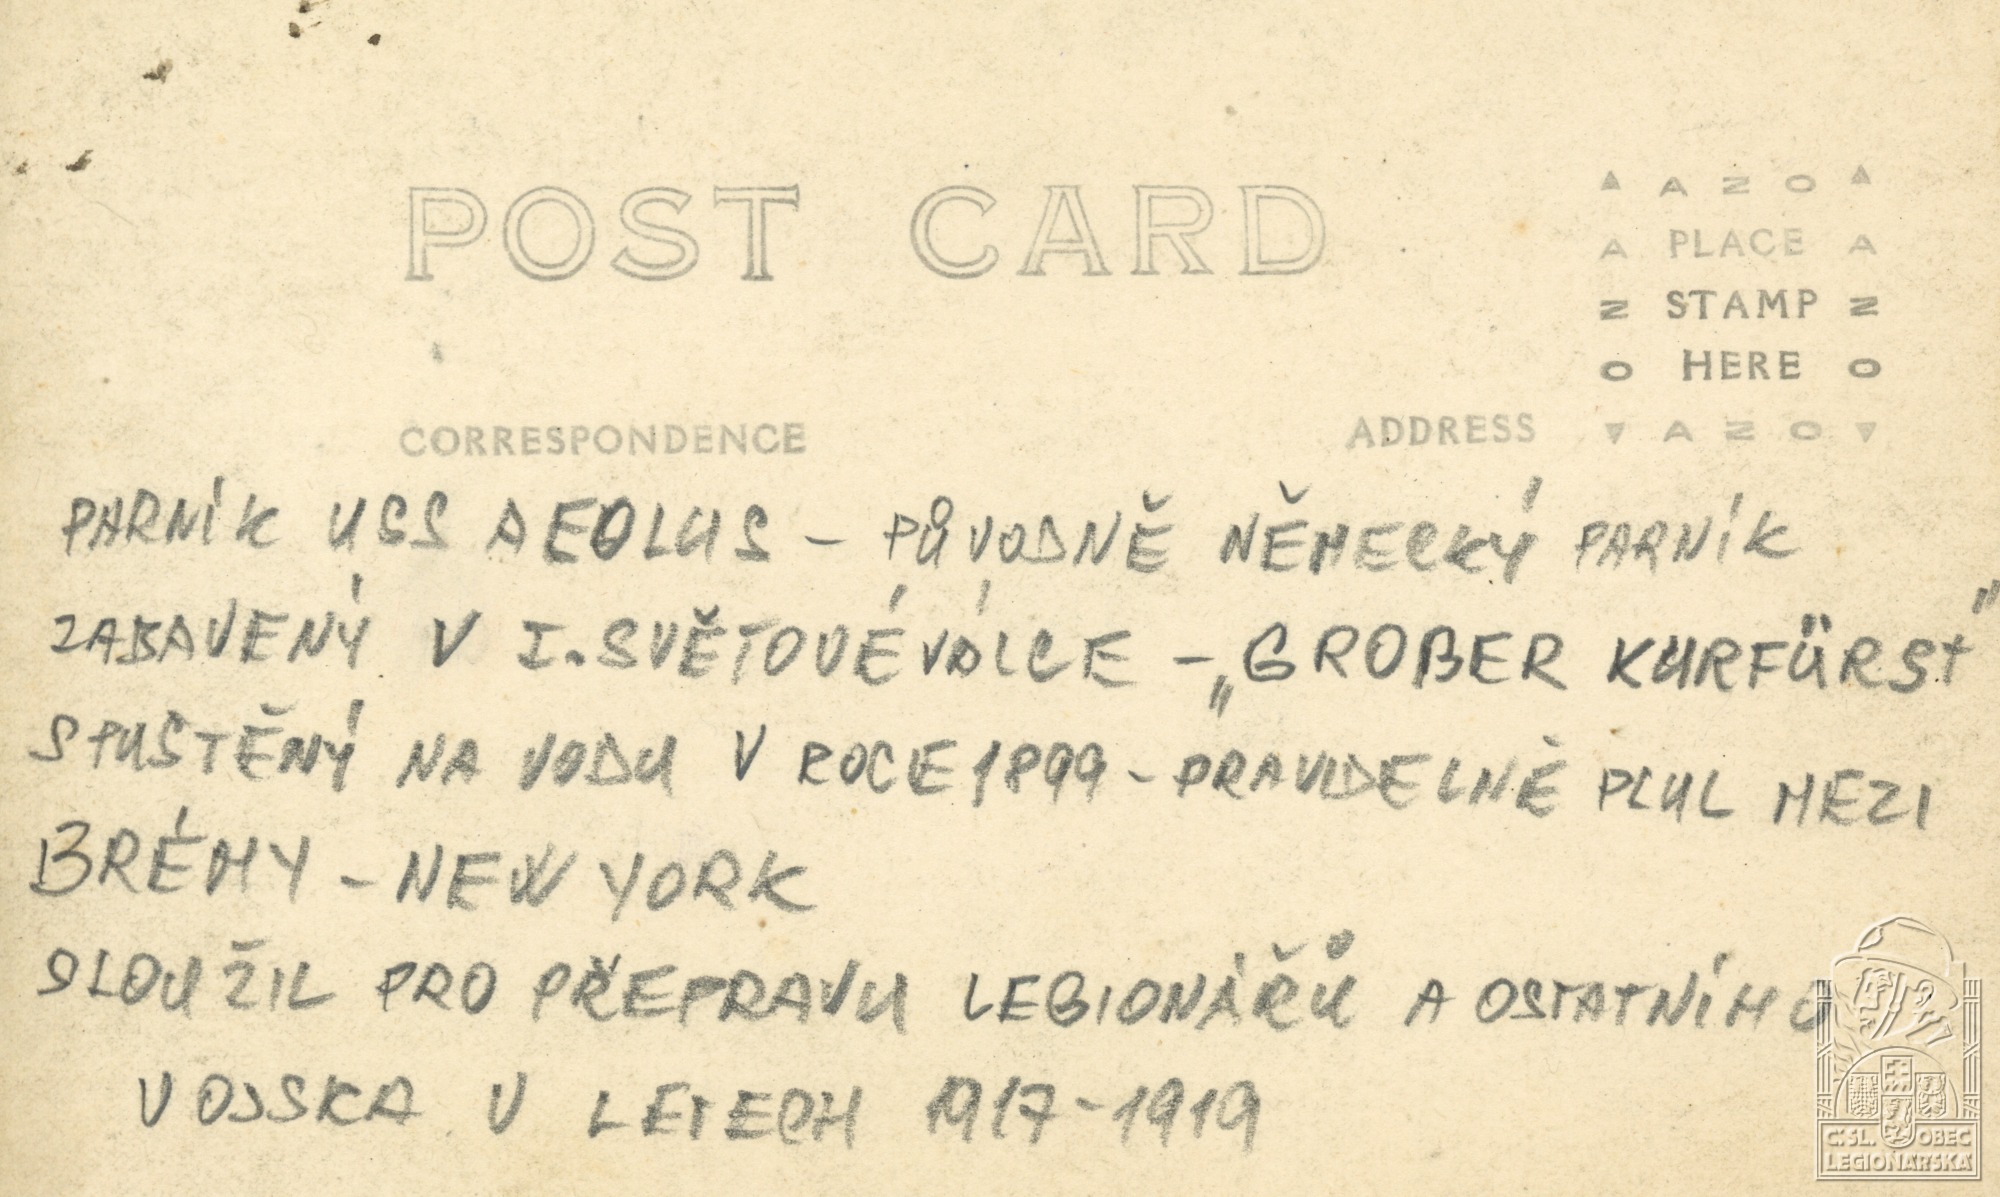 POST CARD
▲ AZO ▲
A PLACE A
N STAMP N
O HERE O
▼ AZO ▼
CORRESPONDENCE
ADDRESS
PARNÍK USS AEOLUS – PŮVODNĚ NĚMECKÝ PARNÍK
ZABAVENÝ V I. SVĚTOVÉ VÁLCE – „GROBER KURFÜRSt"
SPUŠTĚNÝ NA VODU V ROCE 1899 – PRAVIDELNĚ PLUL MEZI
BRÉMY – NEW YORK
SLOUŽIL PRO PŘEPRAVU LEGIONÁŘŮ A OSTATNÍHO
VOJSKA V LETECH 1917–1919
Č.SL. OBEC
LEGIONÁŘSKÁ